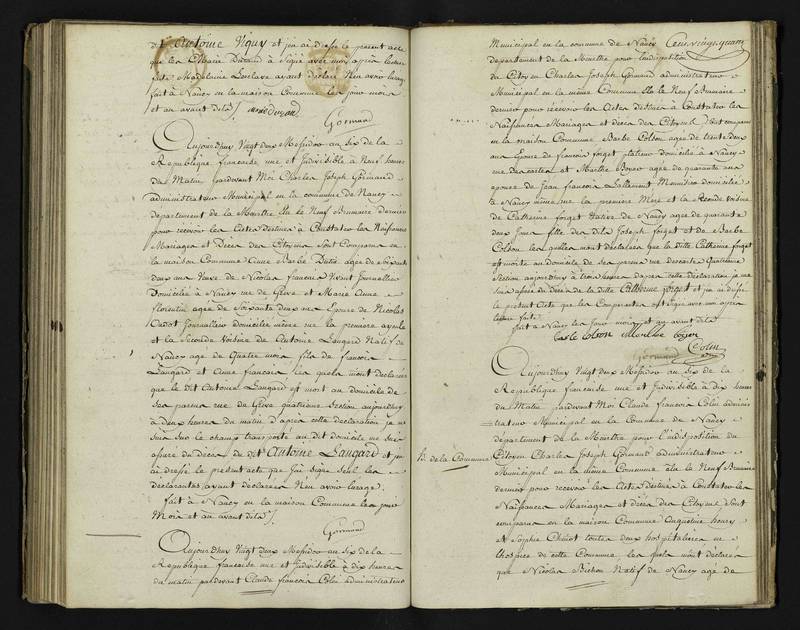 dt. Antoine Viquy et j'en ai dressé le present acte
que les Marie Durand a signé avec moy après lecture
faite Madeleine Leclerc ayant déclaré N'en avoir l'usage
fait à Nancy en la maison Commune les jour mois
et an avant dits /. marie durand
Gormand
Aujourd'huy Vingt deux Messidor an six de la
Republique francaise une et Indivisible à Neuf heures
du Matin pardevant Moi Charles Joseph Gormand
administrateur Municipal en la commune de Nancy
departement de la Meurthe Elu le Neuf Brumaire dernier
pour recevoir les Actes destinés à Constater les Naissances
Mariages et Décès des Citoyens Sont Comparus en
la maison Commune Anne Barbe agée de soixante
deux ans Veuve de Nicolas francois Vivant Journallier
Domiciliée à Nancy rue de Grève et Marie Anne
florentin agée de Soixante deux ans Epouse de Nicolas
Oudot Journallier domiciliée même rue la premiere ayeule
et la Seconde voisine de Antoine Langard Natif de
Nancy agé de Quatre mois fils de francois
Langard et Anne francois les quels m'ont declarés
que le dit Antoine Langard est mort au domicile de
ses parens rue de Grève quatrieme Section aujourd'huy
à deux heures du matin D'après cette declaration je me
suis sur le champ transporté au dit domicile me suis
assuré du décès du dit Antoine Langard et j'en
ai dressé le present acte que j'ai signé Seul les
déclarantes ayant déclarées N'en avoir l'usage.
fait à Nancy en la maison Commune les jour
Mois et an avant dits /.
Gormand
Aujourd'huy Vingt deux Messidor an Six de la
Republique francaise une et Indivisible à dix heures
du matin pardevant Claude francois Colin administrateur
Municipal en la commune de Nancy Cent vingt quatre
departement de la Meurthe pour l'indisposition
du Citoyen Charles Joseph Gormand administrateur
Municipal en la même Commune Elu le Neuf Brumaire
dernier pour recevoir les Actes destinés à Constater les
Naissances Mariages et décès des Citoyens Sont comparus
en la maison Commune Barbe Colson agée de trente deux
ans Epouse de francois forget platrier domiciliée à Nancy
rue et Marthe Boyer agée de quarante ans
épouse de Jean francois Lallement Menuisier domiciliée
à Nancy même rue la premiere Mere et la Seconde voisine
de Catherine forget Native de Nancy agée de quarante
deux Jours fille des dits Joseph forget et de Barbe
Colson les quelles m'ont déclarées que la ditte Catherine forget
est morte au domicile de ses parens rue Quatrieme
Section aujourd'huy à trois heures D'après cette déclaration je me
suis assuré du Décès de la ditte Catherine forget et j'en ai dressé
le present Acte que les Comparantes ont signé avec moi après
lecture faite.
fait à Nancy les Jour mois et an avant dits
barbe Colson marthe boyer
Gormand Colin
Aujourd'huy Vingt deux Messidor an Six de la
Republique francaise une et Indivisible à dix heures
du Matin pardevant Moi Claude francois Colin adminis-
trateur Municipal en la Commune de Nancy
departement de la Meurthe pour l'indisposition du
h. de la Commune
Citoyen Charles Joseph Gormand administrateur
Municipal en la même Commune élu le Neuf Brumaire
dernier pour recevoir les Actes destinés à Constater les
Naissances Mariages et décès des Citoyens Sont
comparus en la maison Commune henry
et Sophie toutes deux hospitalieres en
l'hospice de cette Commune les quels m'ont déclarés
que Nicolas Natif de Nancy agé de